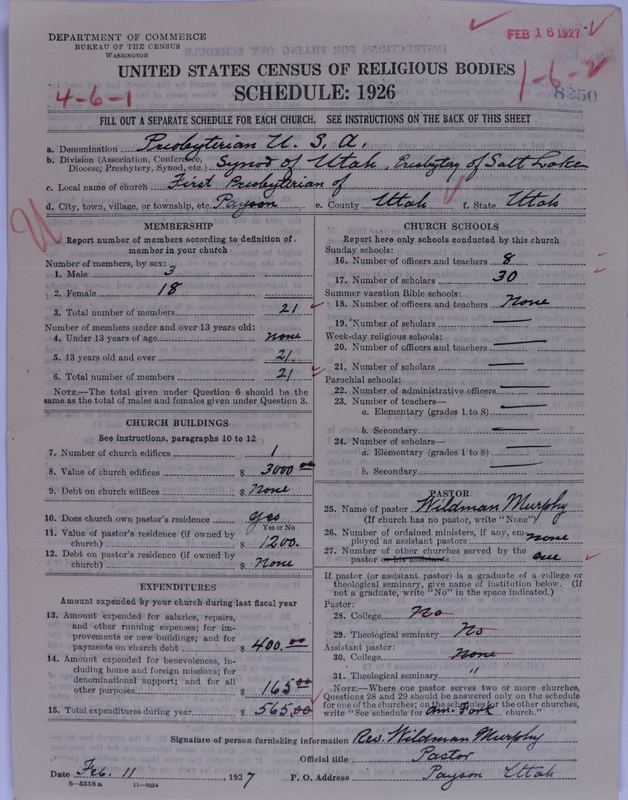 DEPARTMENT OF COMMERCE
BUREAU OF THE CENSUS
WASHINGTON
FEB 16 1927
UNITED STATES CENSUS OF RELIGIOUS BODIES
4-6-1
SCHEDULE: 1926
1-6-2
8250
FILL OUT A SEPARATE SCHEDULE FOR EACH CHURCH. SEE INSTRUCTIONS ON THE BACK OF THIS SHEET
a. Denomination Presbyterian U. S. A.
b. Division (Association, Conference, Diocese, Presbytery, Synod, etc.) Synod of Utah, Presbytery of Salt Lake
c. Local name of church First Presbyterian of
d. City, town, village, or township, etc. Payson e. County Utah f. State Utah
MEMBERSHIP
Report number of members according to definition of
member in your church
Number of members, by sex:
1. Male 3
2. Female 18
3. Total number of members 21
Number of members under and over 13 years old:
4. Under 13 years of age none
5. 13 years old and over 21
6. Total number of members 21
NOTE.—The total given under Question 6 should be
same as the total of males and females given under Question 3.
CHURCH BUILDINGS
See instructions, paragraphs 10 to 12
7. Number of church edifices 1
8. Value of church edifices $ 3000 00
9. Debt on church edifices $ None
10. Does church own pastor's residence yes
Yes or No
11. Value of pastor's residence (if owned by
church) $ 1200.
12. Debt on pastor's residence (if owned by
church) $ None
EXPENDITURES
Amount expended by your church during last fiscal year
13. Amount expended for salaries, repairs,
and other running expenses; for im-
provements or new buildings; and for
payments on church debt $ 400.00
14. Amount expended for benevolences, in-
cluding home and foreign missions; for
denominational support; and for all
other purposes $ 165 00
15. Total expenditures during year $ 565.00
CHURCH SCHOOLS
Report here only schools conducted by this church
Sunday schools:
16. Number of officers and teachers 8
17. Number of scholars 30
Summer vacation Bible schools:
18. Number of officers and teachers None
19. Number of scholars
Week-day religious schools:
20. Number of officers and teachers
21. Number of scholars
Parochial schools:
22. Number of administrative officers
23. Number of teachers—
a. Elementary (grades 1 to 8)
b. Secondary
24. Number of scholars—
a. Elementary (grades 1 to 8)
b. Secondary
PASTOR
25. Name of pastor Wildman Murphy
(If church has no pastor, write "None")
26. Number of ordained ministers, if any, em-
ployed as assistant pastors none
27. Number of other churches served by the
pastor or his assistants one
If pastor (or assistant pastor) is a graduate of a college or
theological seminary, give name of institution below. (If
not a graduate, write "No" in the space indicated.)
Pastor:
28. College No
29. Theological seminary No
Assistant pastor:
30. College None
31. Theological seminary "
NOTE.—Where one pastor serves two or more churches,
Questions 28 and 29 should be answered only on the schedule
for one of the churches; on the schedules for the other churches,
write "See schedule for Am. Fork church."
Signature of person furnishing information Rev. Wildman Murphy
Official title Pastor
Date Feb. 11 1927 P. O. Address Payson Utah
8—5518a 11—9024